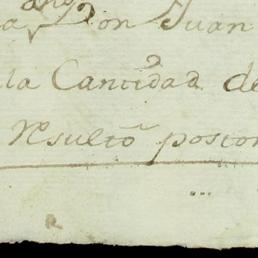 a Don Juan
la Cantidad de
Resultó postor